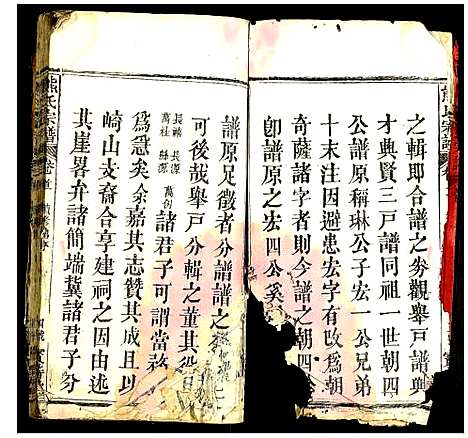 熊氏宗譜
之輯即合譜之券觀舉戸譜與
才典賢三戸譜同祖一世朝四
公譜原稱琳公子宏一公兄弟
十末注因避患宏字有改為朝
奇薩諸字者則今譜之朝四
卽譜原之宏四公奚
譜原足徵者分譜譜之
可後哉舉戸分輯之董其役
長綿 長源 萬桂 諸君子可謂當務
為急矣余嘉其志贊其成且以
崎山支裔合享建祠之因由述
其崖畧弁諸簡端冀諸君子分
熊氏宗譜 卷首